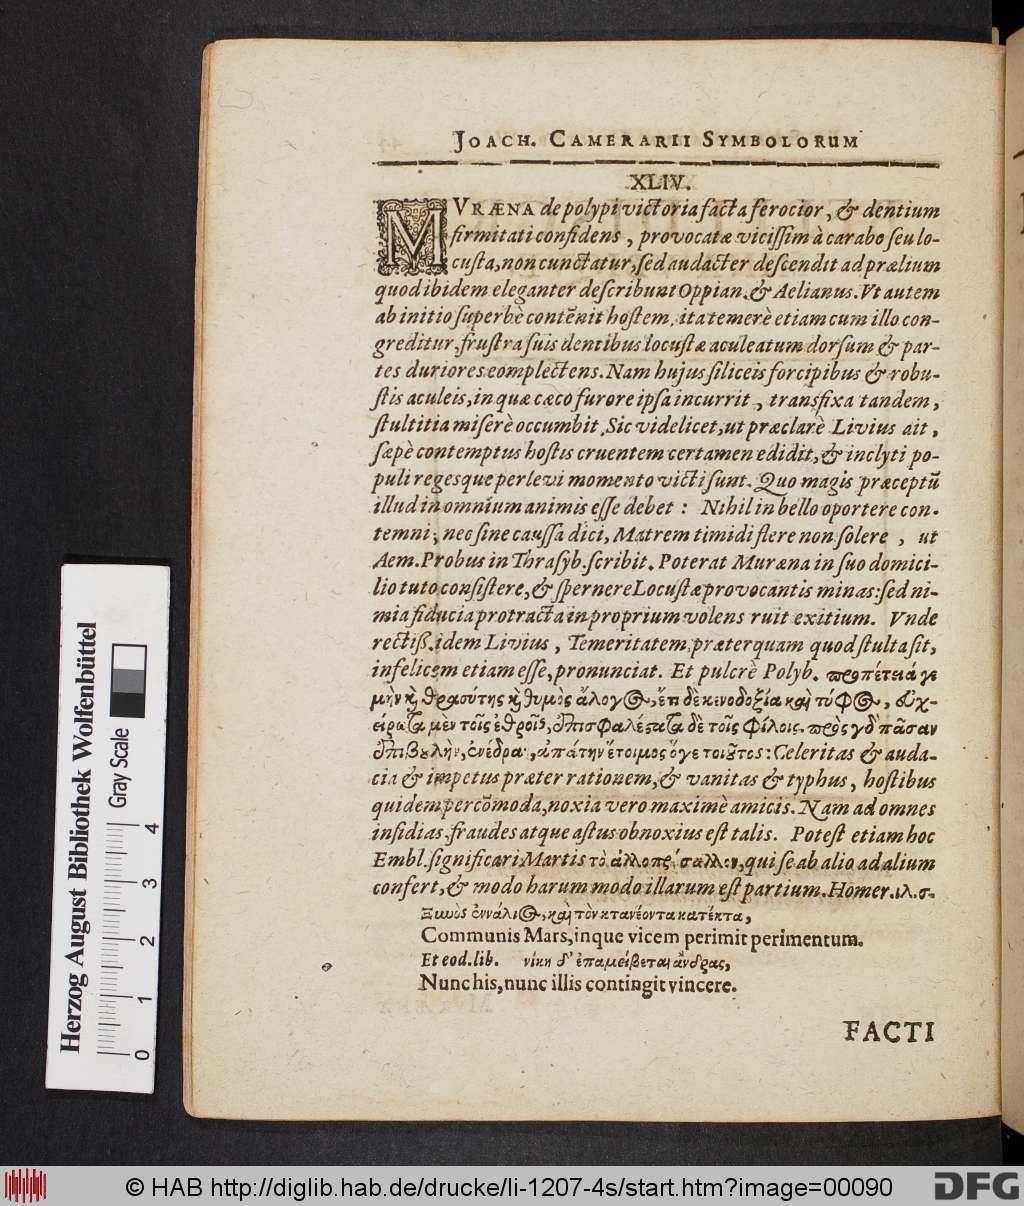 JOACH. CAMERARII SYMBOLORUM
XLIV.
MURÆNA de polypi victoria facta ferocior, & dentium
firmitati confidens, provocatæ vicissim à carabo seu lo-
custa, non cunctatur, sed audacter descendit ad prælium
quod ibidem eleganter describunt Oppian. & Aelianus. Vt autem
ab initio superbè contēnit hostem, ita temerè etiam cum illo con-
greditur, frustra suis dentibus locustæ aculeatum dorsum & par-
tes duriores complectens. Nam hujus siliceis forcipibus & robu-
stis aculeis, in quæ cæco furore ipsa incurrit, transfixa tandem,
stultitia miserè occumbit. Sic videlicet, ut præclarè Livius ait,
sæpè contemptus hostis cruentem certamen edidit, & inclyti po-
puli regesque per levi momento victi sunt. Quo magis præceptū
illud in omnium animis esse debet: Nihil in bello oportere con-
temni; nec sine caussa dici, Matrem timidi flere non solere, ut
Aem. Probus in Thrasyb. scribit. Poterat Muræna in suo domici-
lio tuto consistere, & spernere Locustæ provocantis minas: sed ni-
mia fiducia protracta in proprium volens ruit exitium. Vnde
rectiß. idem Livius, Temeritatem, præterquam quod stulta sit,
infelicem etiam esse, pronunciat. Et pulcrè Polyb. προπέτειά γε
μὴν κ̀ θρασύτης κ̀ θυμὸς ἄλογος, ἔτι δὲ κενοδοξία καὶ τύφος, εὐχ-
είρωτα μὲν τοῖς ἐθροῖς, ἐπισφαλέςατα δὲ τοῖς φίλοις. πρὸς γδ πᾶσαν
ἐπιβουλὴν, ἐνέδραν, ἀπάτην ἕτοιμος ὅγε τοιοῦτος: Celeritas & auda-
cia & impetus præter rationem, & vanitas & typhus, hostibus
quidem percōmoda, noxia vero maximè amicis. Nam ad omnes
insidias, fraudes atque astus obnoxius est talis. Potest etiam hoc
Embl. significari Martis τὸ ἀλλοπρόσαλλον, qui se ab alio ad alium
confert, & modo harum modo illarum est partium. Homer. ιλ. σ.
Ξυνὸς ἐννάλιος, καὶ τὸν κτανέοντα κατέκτα,
Communis Mars, inque vicem perimit perimentum.
Et eod. lib. νίκη δ' ἐπαμείβεται ἄνδρας,
Nunc his, nunc illis contingit vincere.
FACTI
Herzog August Bibliothek Wolfenbüttel
Gray Scale
0 1 2 3 4
© HAB http://diglib.hab.de/drucke/li-1207-4s/start.htm?image=00090
DFG